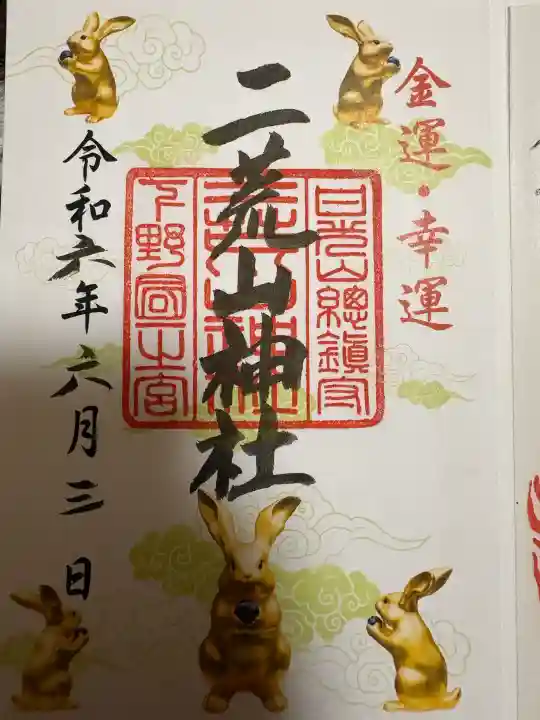 金運・幸運
日光山總鎮守
二荒山神社
下野国一之宮
令和六年六月三日